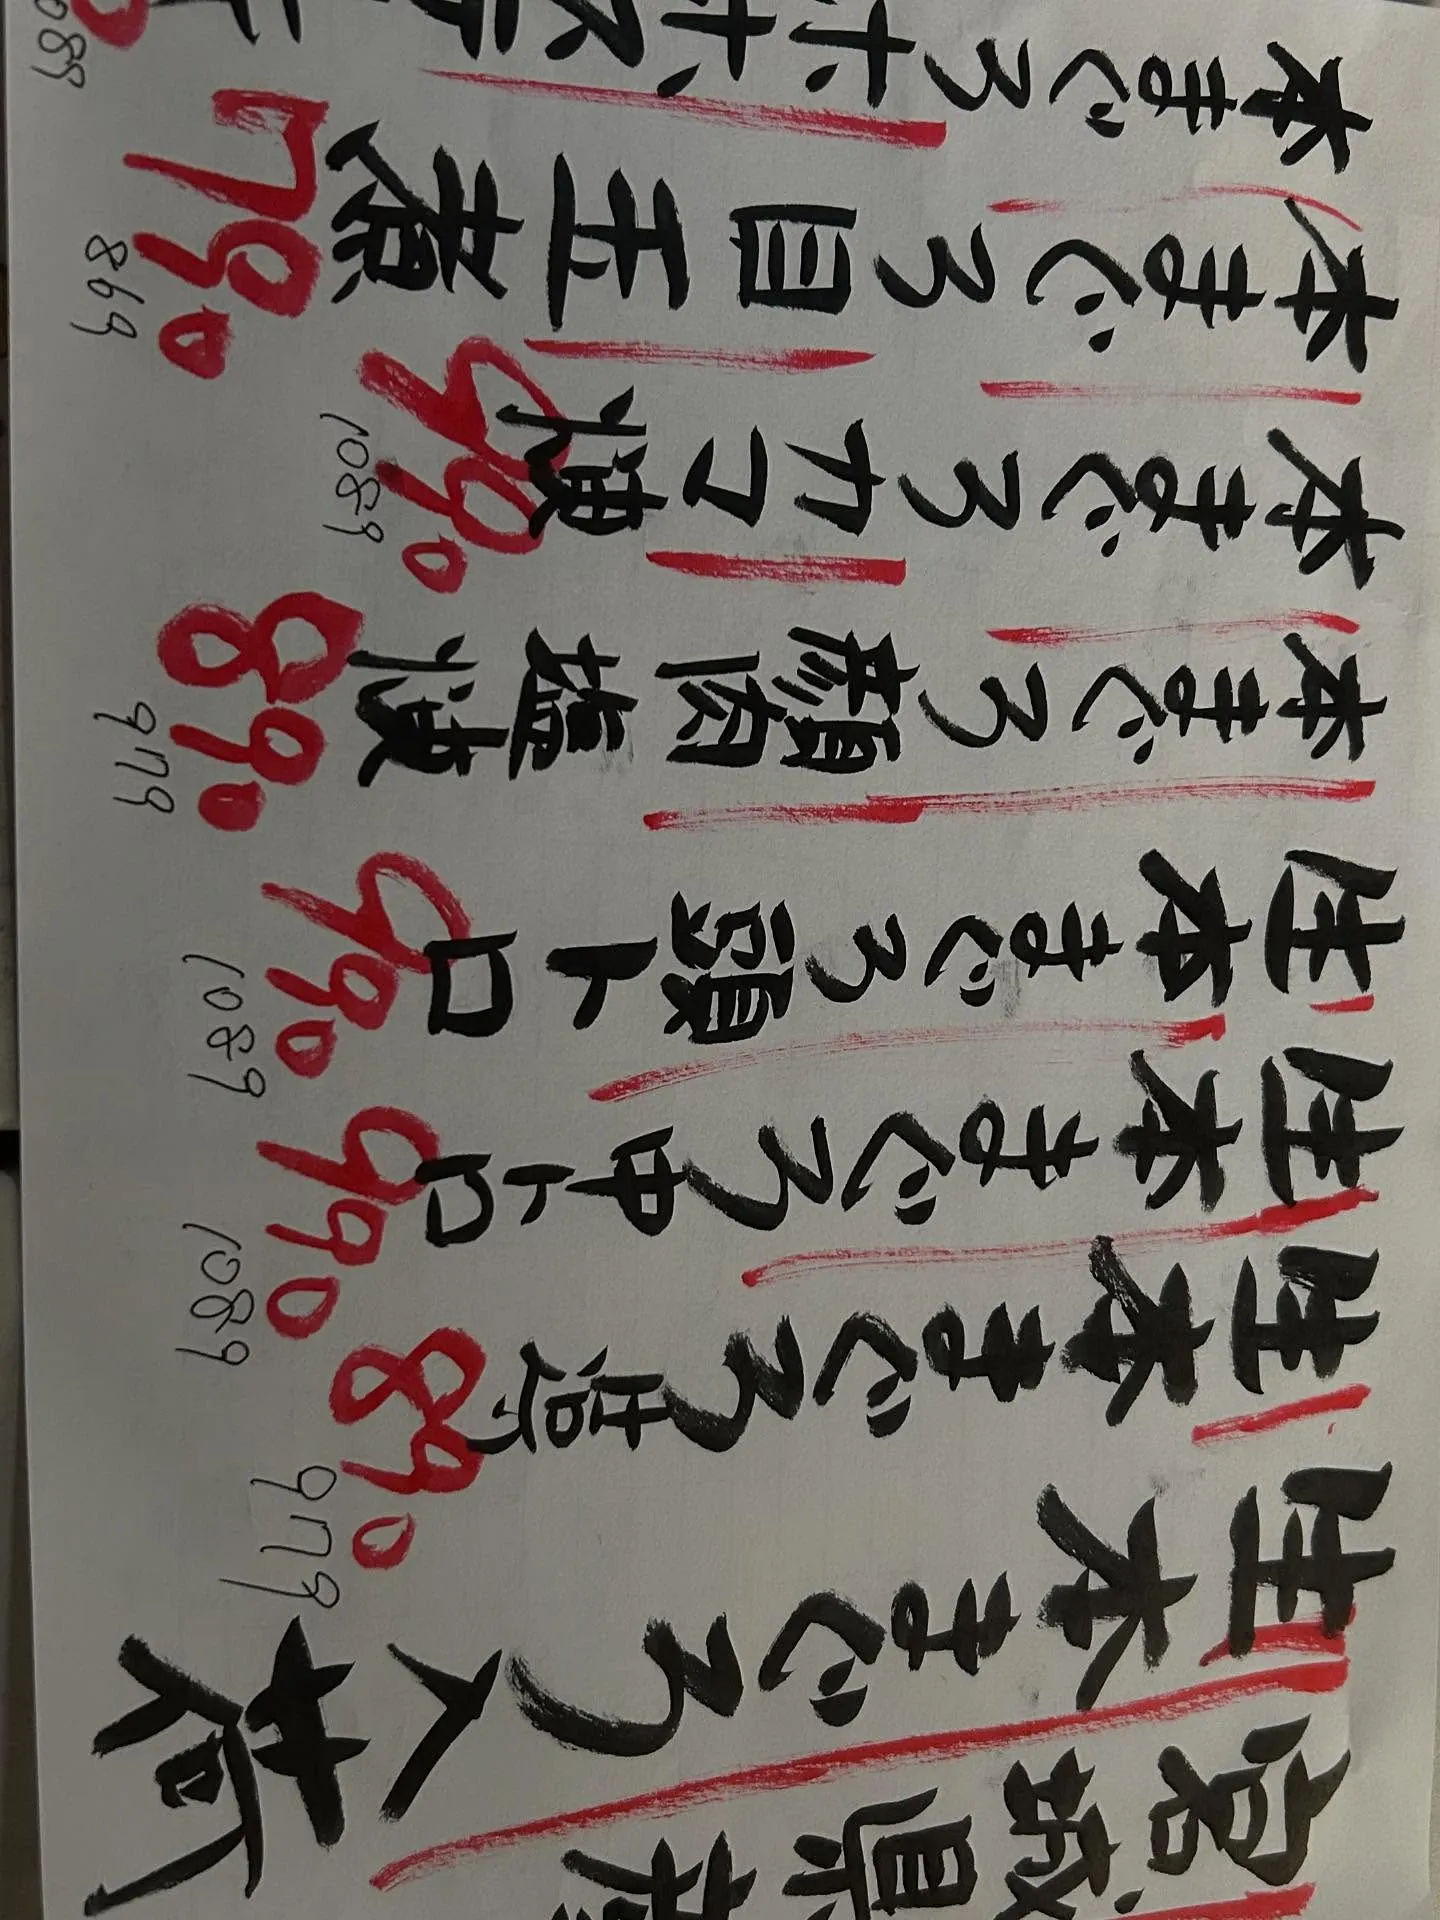 宮城県
生本まぐろ入荷
生本まぐろ
890
979
生本まぐろ中トロ
990
1089
生本まぐろ頭トロ
990
1089
本まぐろ顔肉塩焼
890
979
本まぐろカマ焼
990
1089
本まぐろ目玉煮
790
869
本まぐろホホステ
1089